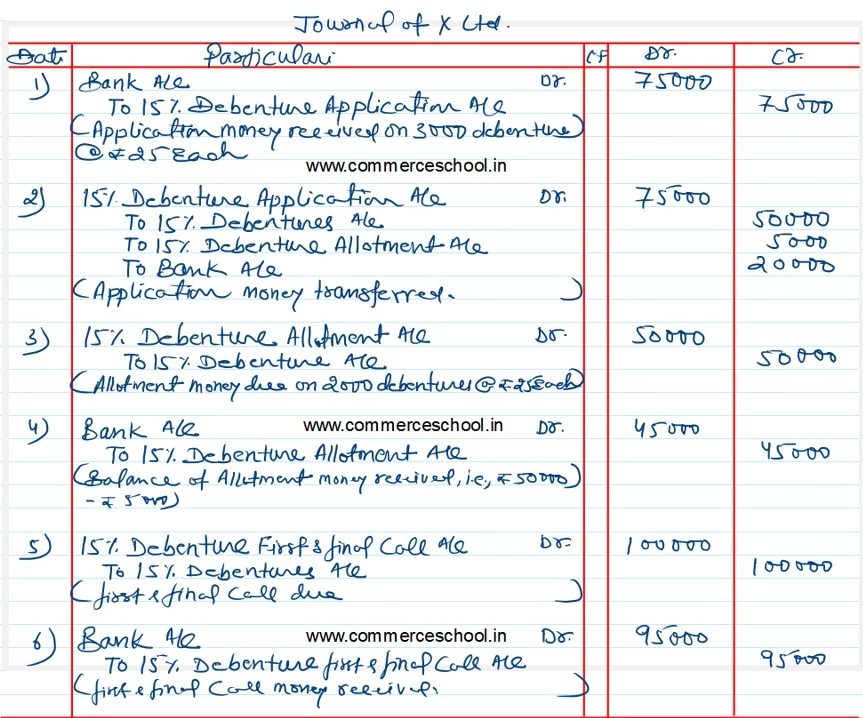 Journal of X Ltd.
Date Particulars LF Dr. Cr.
1) Bank A/c Dr. 75000
To 15% Debenture Application A/c 75000
(Application money received on 3000 debenture
@ ₹25 Each
www.commerceschool.in
2) 15% Debenture Application A/c Dr. 75000
To 15% Debentures A/c 50000
To 15% Debenture Allotment A/c 5000
To Bank A/c 20000
(Application money transferred.)
3) 15% Debenture Allotment A/c Dr. 50000
To 15% Debenture A/c 50000
(Allotment money due on 2000 debentures @ ₹25 Each)
4) Bank A/c www.commerceschool.in Dr. 45000
To 15% Debenture Allotment A/c 45000
(Balance of Allotment money received, i.e., ₹50000)
- ₹5000)
5) 15% Debenture First & final Call A/c Dr. 100000
To 15% Debentures A/c 100000
(first & final Call due)
6) Bank A/c www.commerceschool.in Dr. 95000
To 15% Debenture first & final Call A/c 95000
(first & final Call money received.)